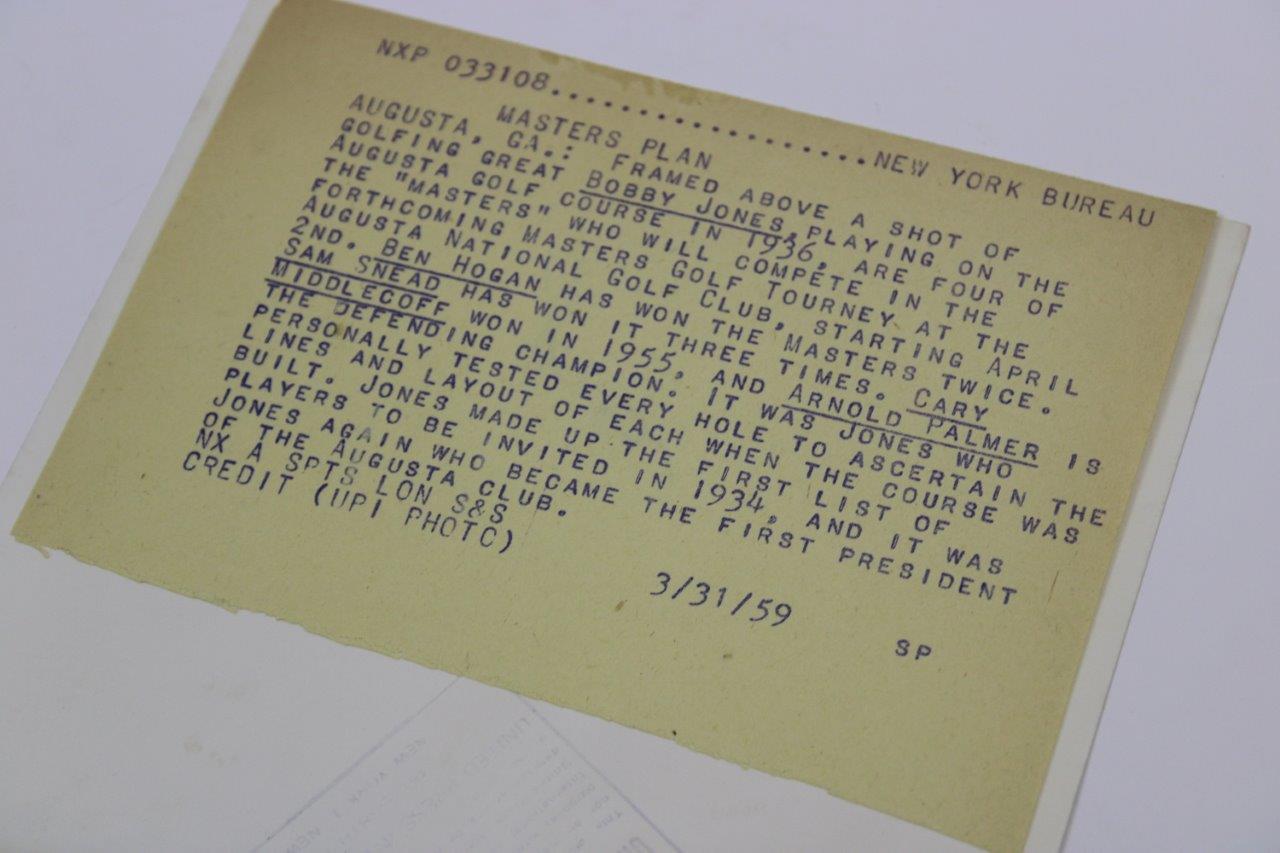 NXP 033108...................NEW YORK BUREAU
MASTERS PLAN
AUGUSTA, GA.: FRAMED ABOVE A SHOT OF
GOLFING GREAT BOBBY JONES, PLAYING ON THE
AUGUSTA GOLF COURSE IN 1936, ARE FOUR OF
THE "MASTERS" WHO WILL COMPETE IN THE
FORTHCOMING MASTERS GOLF TOURNEY AT THE
AUGUSTA NATIONAL GOLF CLUB, STARTING APRIL
2ND. BEN HOGAN HAS WON THE MASTERS TWICE.
SAM SNEAD HAS WON IT THREE TIMES. CARY
MIDDLECOFF WON IN 1955, AND ARNOLD PALMER IS
THE DEFENDING CHAMPION. IT WAS JONES WHO
PERSONALLY TESTED EVERY HOLE TO ASCERTAIN THE
LINES AND LAYOUT OF EACH WHEN THE COURSE WAS
BUILT. JONES MADE UP THE FIRST LIST OF
PLAYERS TO BE INVITED IN 1934, AND IT WAS
JONES AGAIN WHO BECAME THE FIRST PRESIDENT
OF THE AUGUSTA CLUB.
NX A SPTS LON S&S
CREDIT (UPI PHOTO)
3/31/59
SP
UNITED